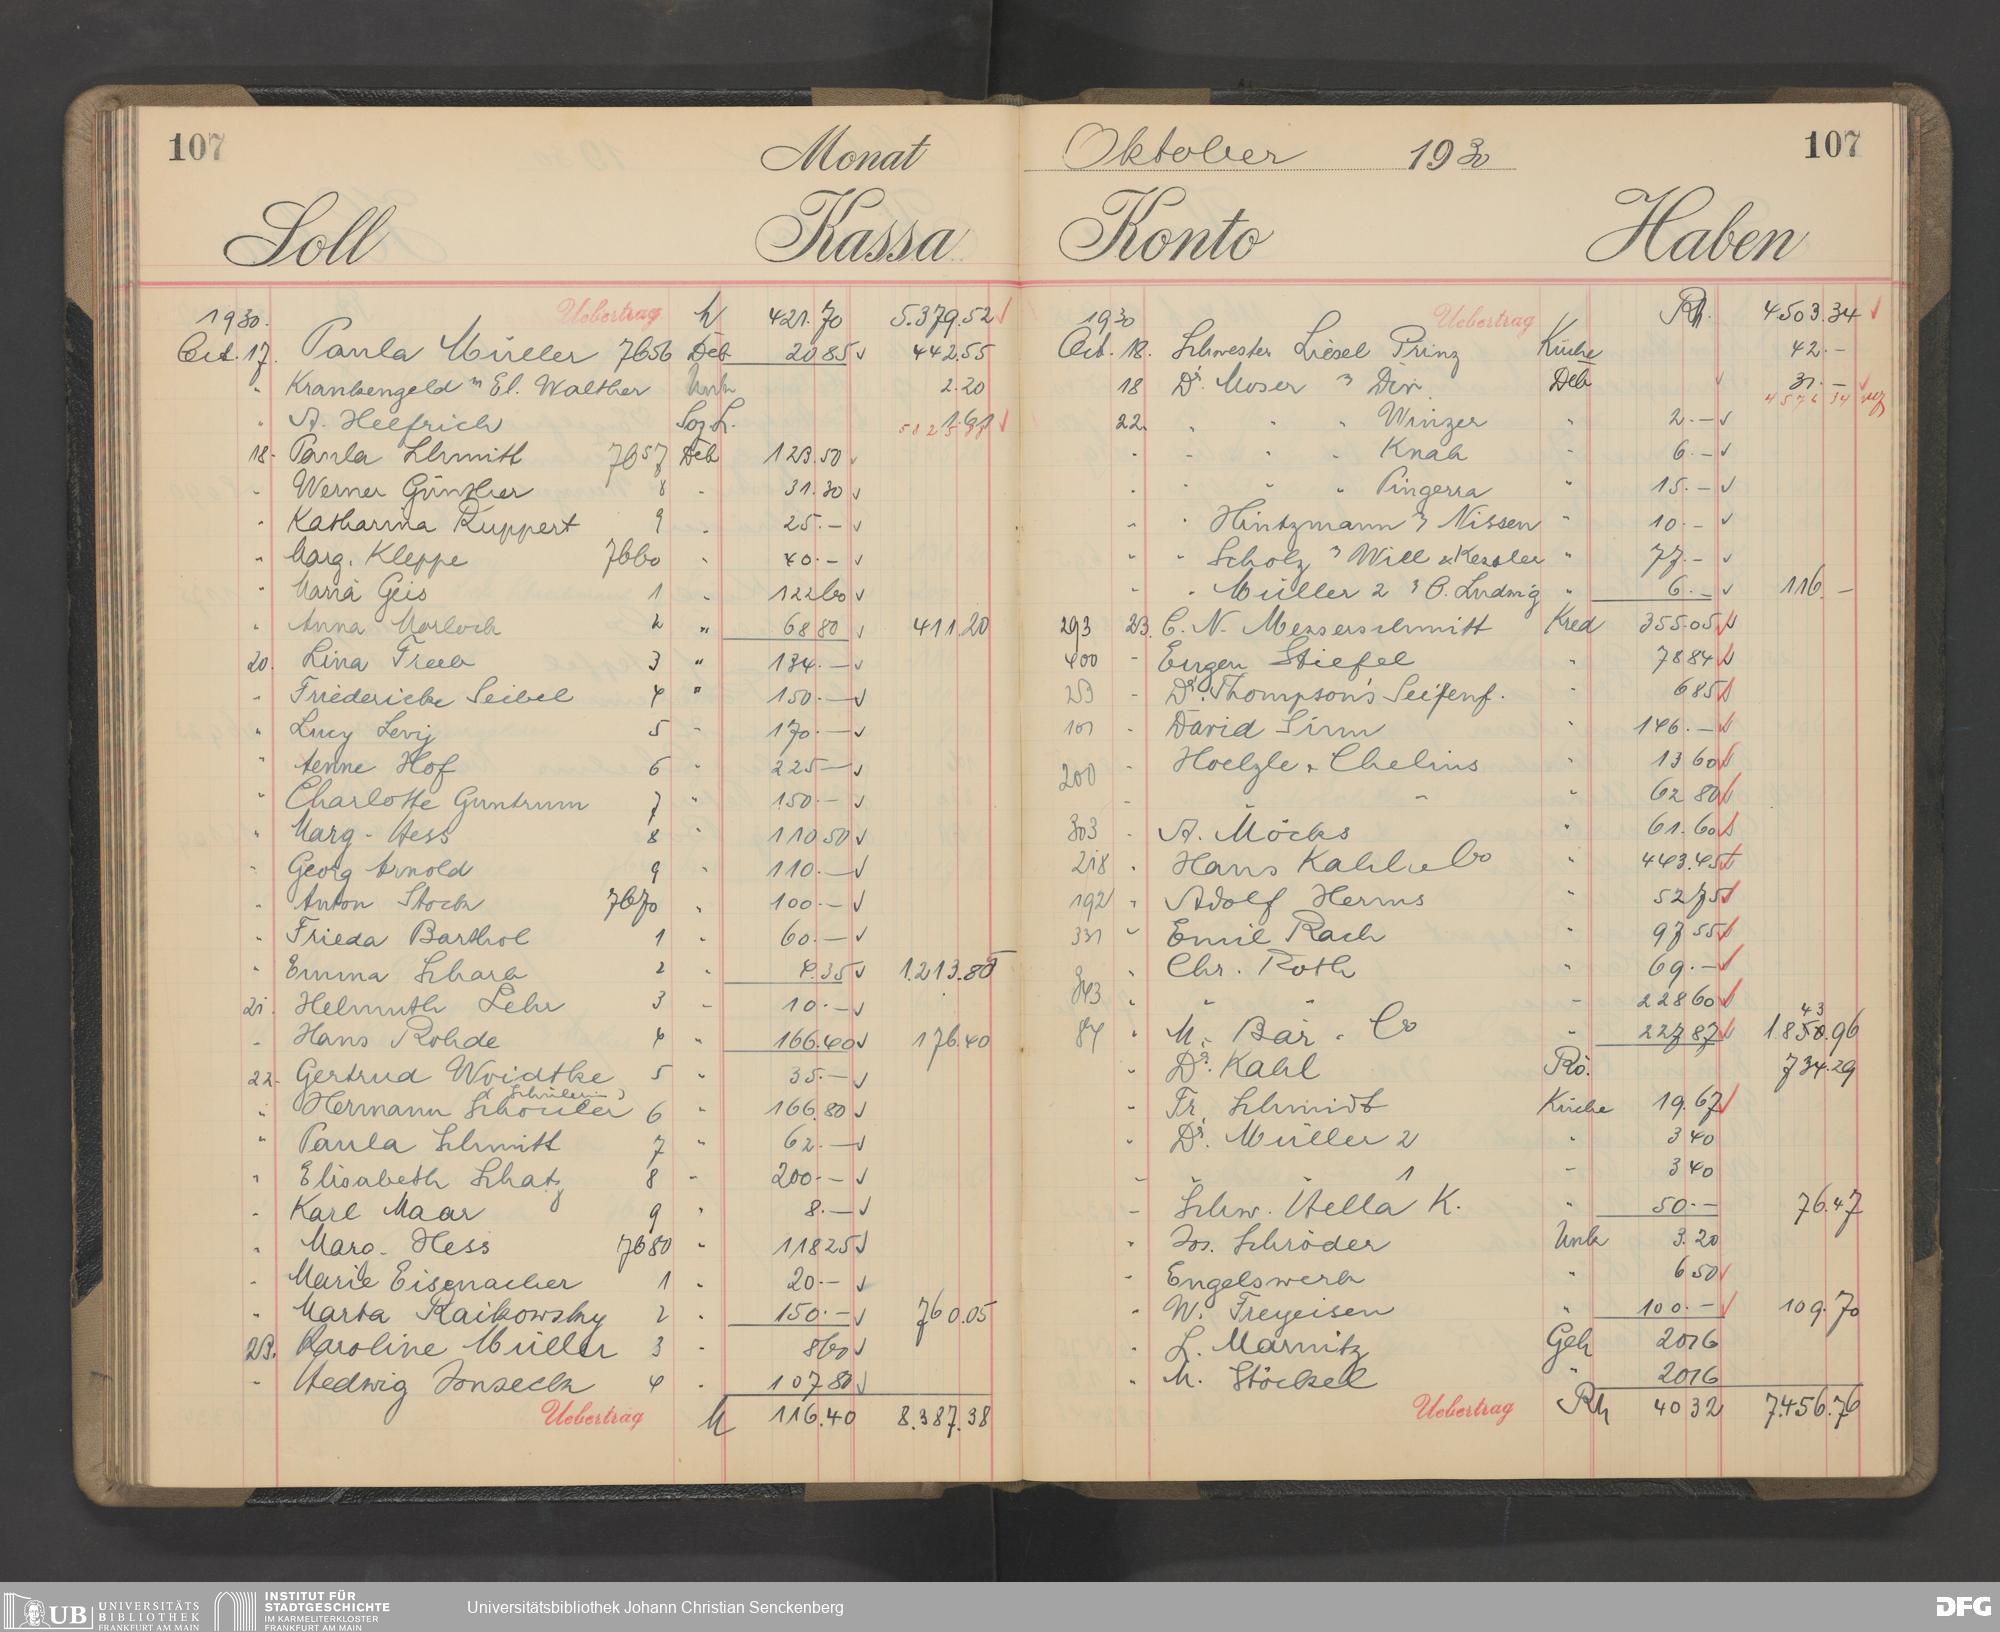 107 Monat
Soll Kassa
1930. Uebertrag h 421.70 5.379.52 √
Oct. 17. Paula Müller 7656 Deb 20 85 √ 442.55
" Krankengeld " El. Walther Unk 2.20
" A. Helfrich 1.61 √
18. Paula Schmitt 7657 Deb 123.50 √
" Werner Günther 8 " 31.30 √
" Katharina Ruppert 9 " 25.— √
" Marg. Kleppe 7660 " 40.— √
" Maria Geis 1 " 122 60 √
" Anna Morlock 2 " 68 80 √ 411.20
20. Lina Treeb 3 " 134.— √
" Friedericke Seibel 4 " 150.— √
" Lucy Levy 5 " 170.— √
" Aenne Hof 6 " 225— √
" Charlotte Guntrum 7 " 150.— √
" Marg. Hess 8 " 110 50 √
" Georg Arnold 9 " 110.— √
" Anton Stock 7670 " 100.— √
" Frieda Barthol 1 " 60.— √
" Emma Scharb 2 " 4.35 √ 1.213.85
21. Helmuth Lehr 3 " 10.— √
" Hans Rohde 4 " 166.40 √ 176.40
22. Gertrud Woidtke 5 " 35.— √
(Schülerin)
" Hermann Schouler 6 " 166.80 √
" Paula Schmitt 7 " 62.— √
" Elisabeth Schatz 8 " 200.— √
" Karl Maar 9 " 8.— √
" Marg. Hess 7680 " 118 25 √
" Marie Eisenacher 1 " 20.— √
" Marta Raikowsky 2 " 150.— √ 760.05
23. Karoline Müller 3 " 8 60 √
" Hedwig Jonseck 4 " 107 80 √
Uebertrag h 116.40 8.387.38
Oktober 1930 107
Konto Haben
1930 Uebertrag Rh. 4503.34 √
Oct. 18. Schwester Liesel Prinz Küche 42.—
18 Dr. Moser " Div. Deb √ 31.— √
4576 34
22. " " " Winzer " 2.— √
" " " " Knab " 6.— √
" " " " Pingerra " 15.— √
" " Hintzmann " Nissen " 10.— √
" " Scholz " Will & Kessler " 77.— √
" " Müller 2 " O. Ludwig " 6.— √ 116.—
293 23. C. N. Messerschmitt Kred 355.05 √
400 " Eugen Stiefel " 78 84 √
253 " Dr. Thompson's Seifenf. " 6 85 √
101 " David Sinn " 146.— √
200 " Hoelzle & Chelius " 13 60 √
" " " 62 80 √
303 " A. Möcks " 61.60 √
218 " Hans Kahl & Co " 443.45 √
192 " Adolf Herms " 52 75 √
331 " Emil Rach " 97 55 √
" Chr. Roth " 69.— √
343 " " " " 228 60 √
43
84 " M. Bär & Co " 227 87 √ 1.850.96
" Dr. Kahl Rö. 734.29
" Fr. Schmidt Küche 19.67 √
" Dr. Müller 2 " 3 40
" " " 1 " 3 40
" Schw. Hella K. " 50.— 76.47
" Jos. Schröder Unk 3.20
" Engelswerk " 6 50 √
" W. Freyeisen " 100.— √ 109.70
" L. Marnitz Geh 20 16
" M. Stöckel " 20 16
Uebertrag Rh 40 32 7.456.76
UB UNIVERSITÄTS
BIBLIOTHEK
FRANKFURT AM MAIN
INSTITUT FÜR
STADTGESCHICHTE
IM KARMELITERKLOSTER
FRANKFURT AM MAIN
Universitätsbibliothek Johann Christian Senckenberg
DFG